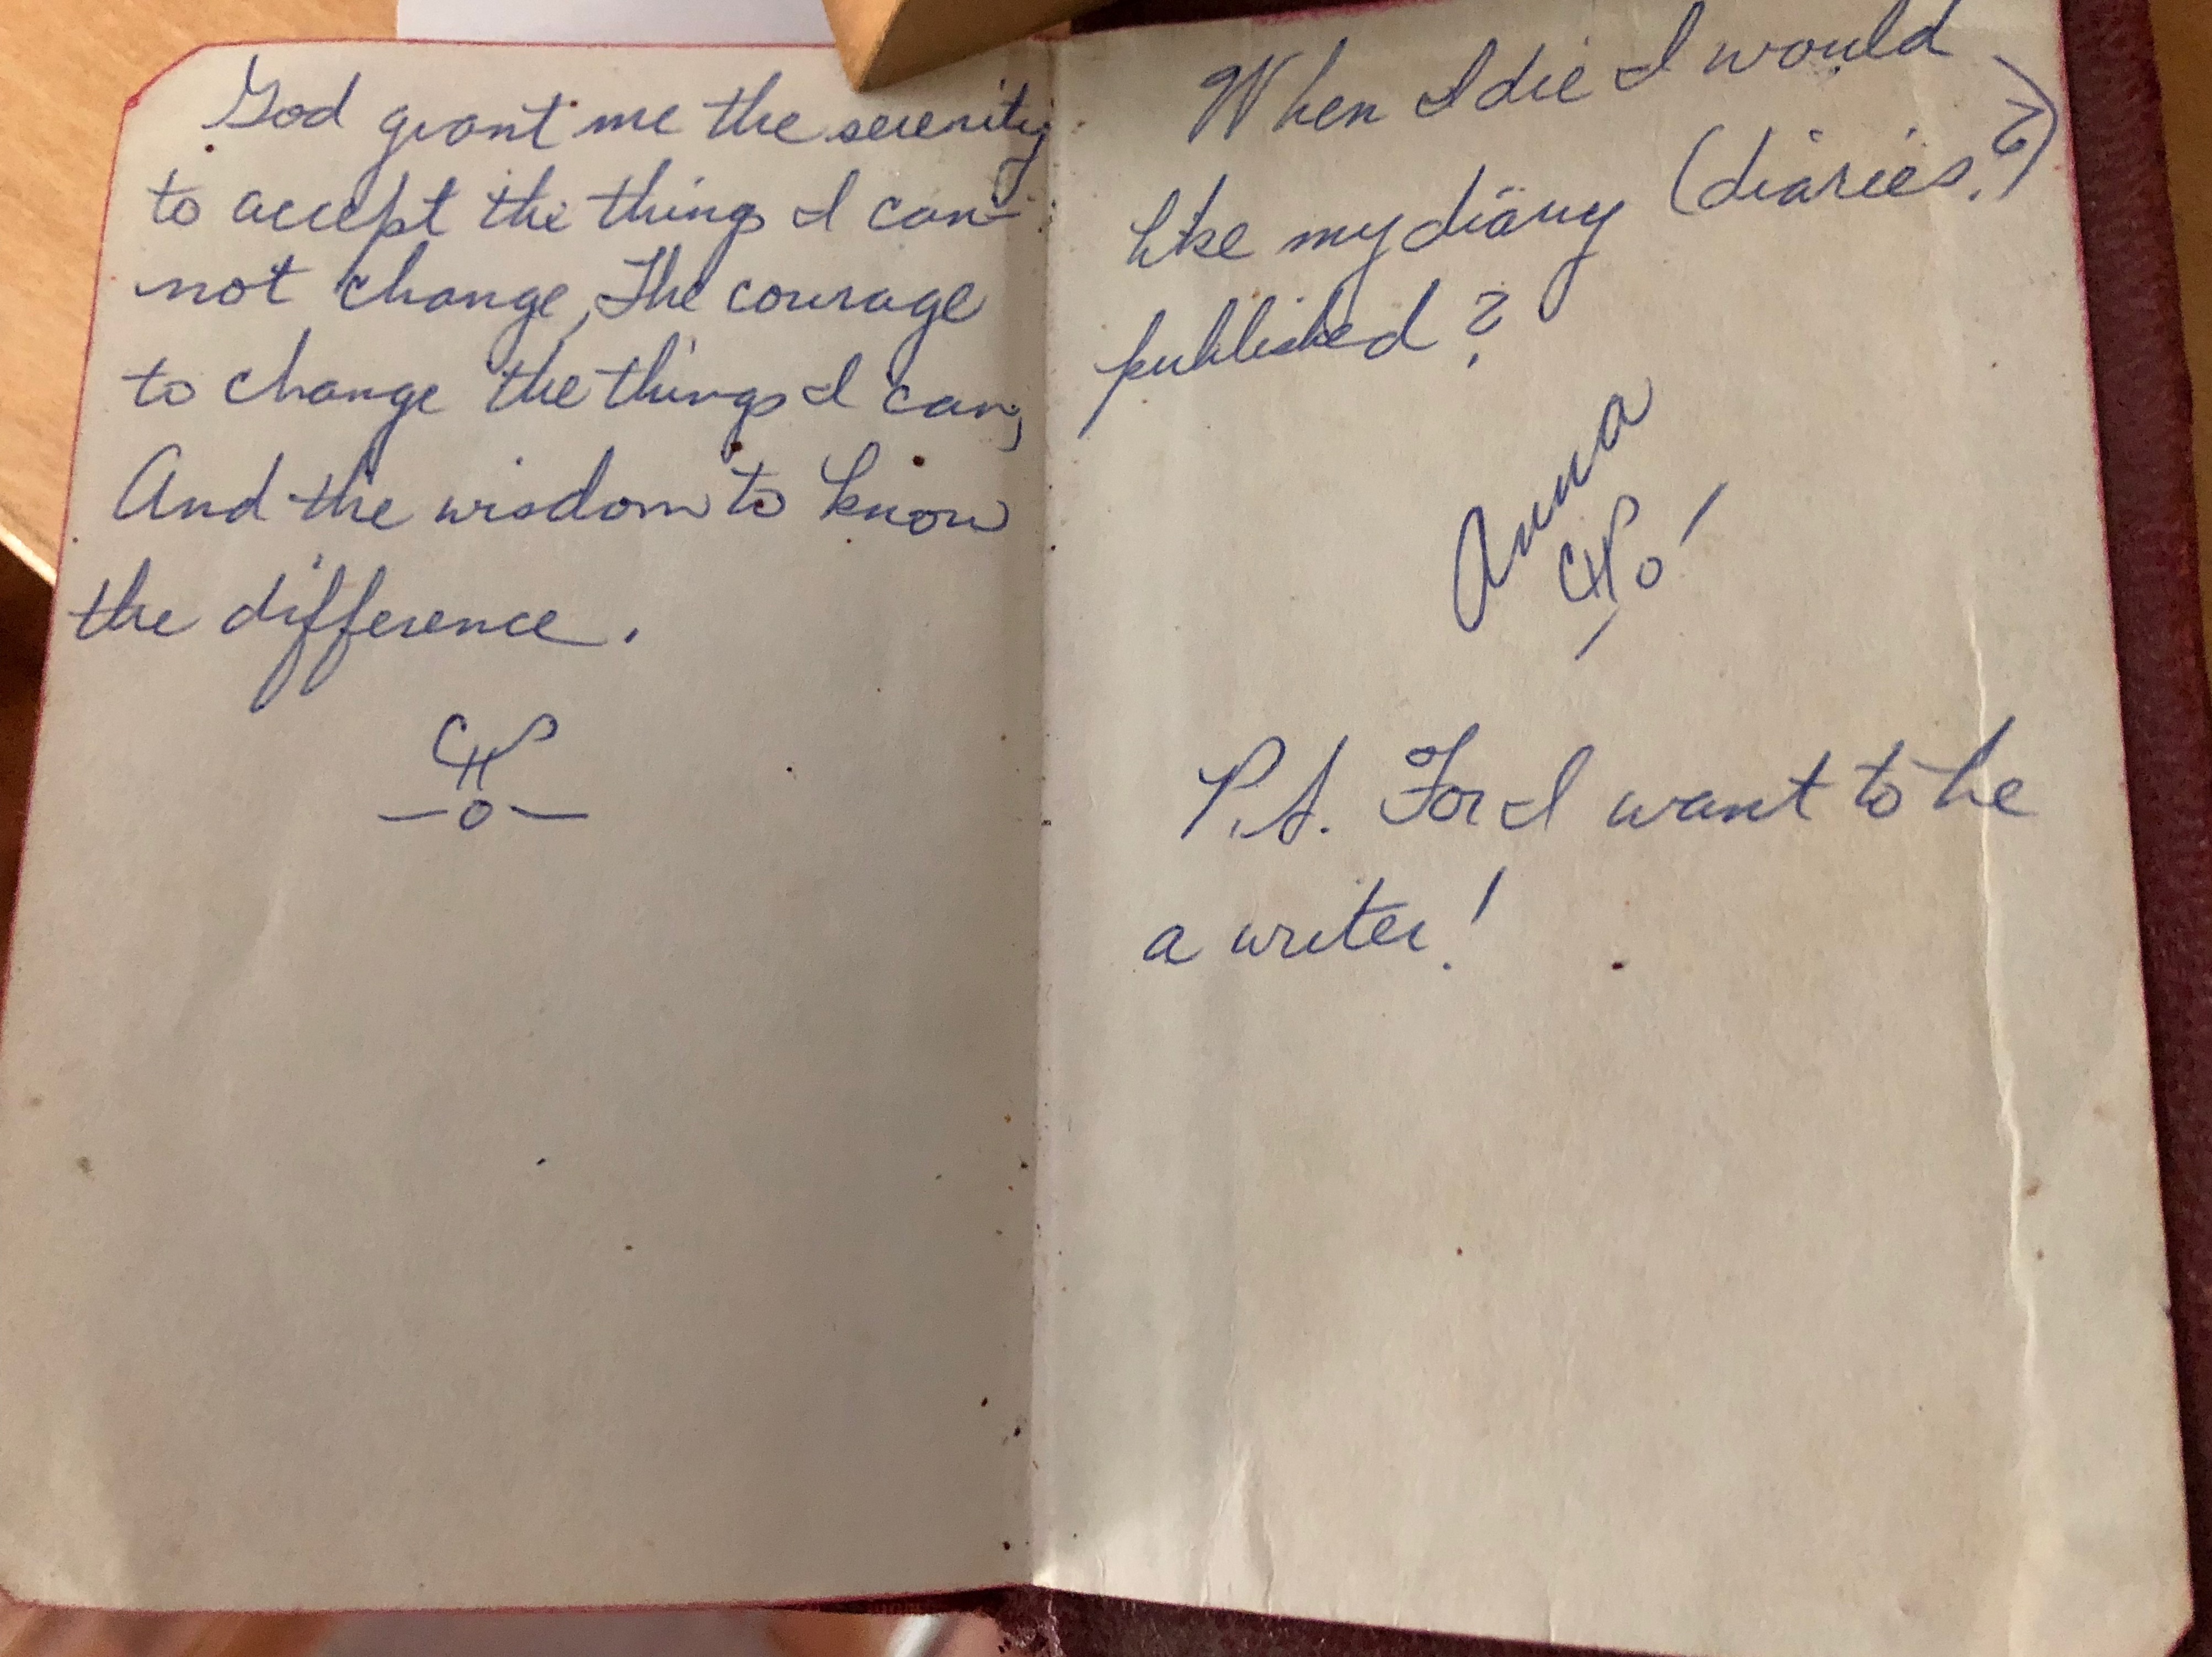 God grant me the serenity
to accept the things I can-
not change, The courage
to change the things I can,
And the wisdom to know
the difference.
When I die I would
like my diary (diaries?)
published?
Anna
P.S. For I want to be
a writer!